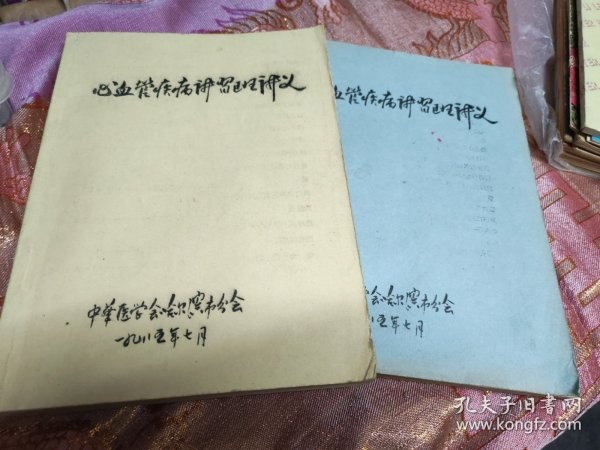 心血管疾病讲习班讲义
中华医学会哈尔滨市分会
一九八五年七月
血管疾病讲习班讲义
会哈尔滨市分会
五年七月
孔夫子旧书网
www.kongfz.com